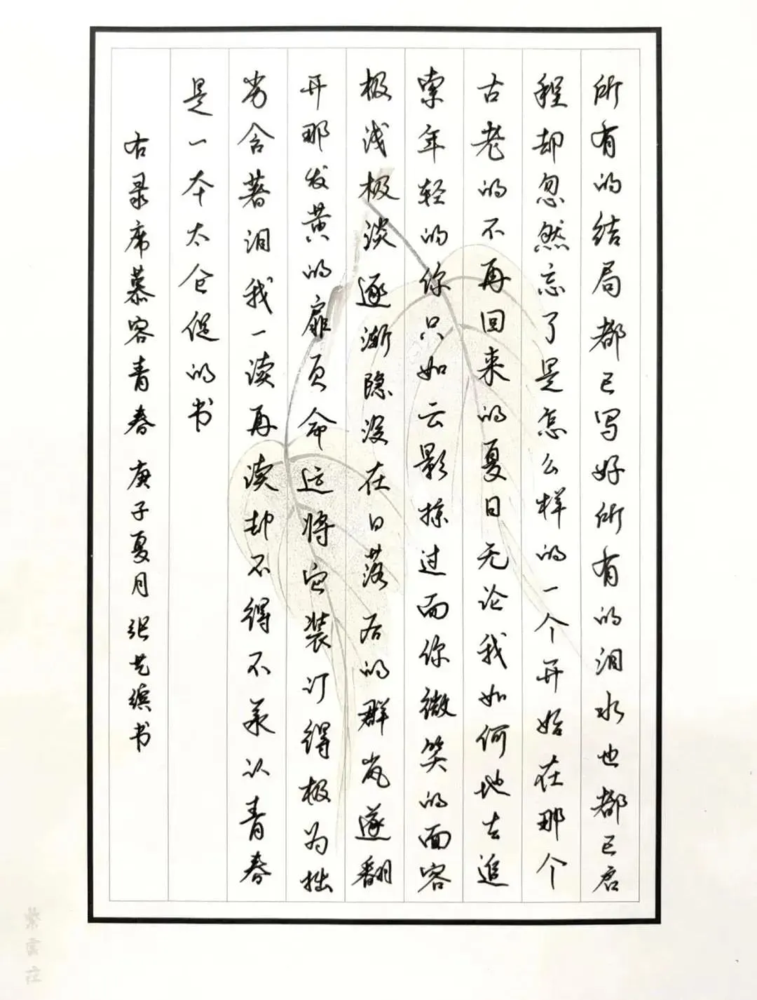 所有的结局都已写好所有的泪水也都已启
程却忽然忘了是怎么样的一个开始在那个
古老的不再回来的夏日无论我如何地去追
索年轻的你只如云影掠过而你微笑的面容
极浅极淡逐渐隐没在日落后的群岚遂翻
开那发黄的扉页命运将它装订得极为拙
劣含著泪我一读再读却不得不承认青春
是一本太仓促的书
右录席慕容青春 庚子夏月 张艺缤书